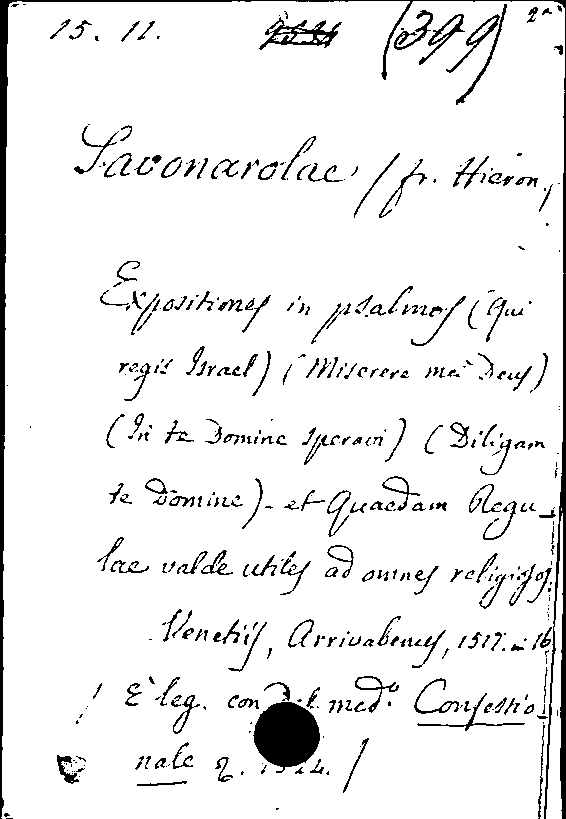 15. 11. (399) 2a
Savonarolae / fr. Hieron./
Expositiones in psalmos (Qui
regis Israel) (Miserere mei Deus)
(In te Domine speravi) (Diligam
te Domine) - et Quaedam Regu_
lae valde utiles ad omnes religiosos.
Venetiis, Arrivabenus, 1517. in 16
/ È leg. con med.o Confessio_
nale /